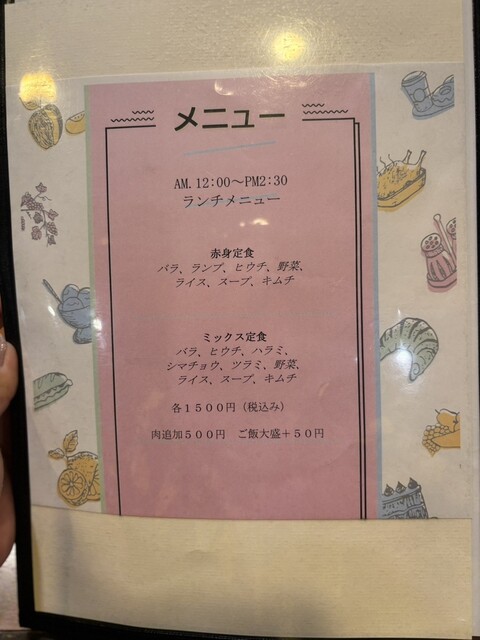 メニュー
AM.12:00～PM2:30
ランチメニュー
赤身定食
バラ、ランプ、ヒウチ、野菜、
ライス、スープ、キムチ
ミックス定食
バラ、ヒウチ、ハラミ、
シマチョウ、ツラミ、野菜、
ライス、スープ、キムチ
各１５００円（税込み）
肉追加５００円　ご飯大盛＋５０円